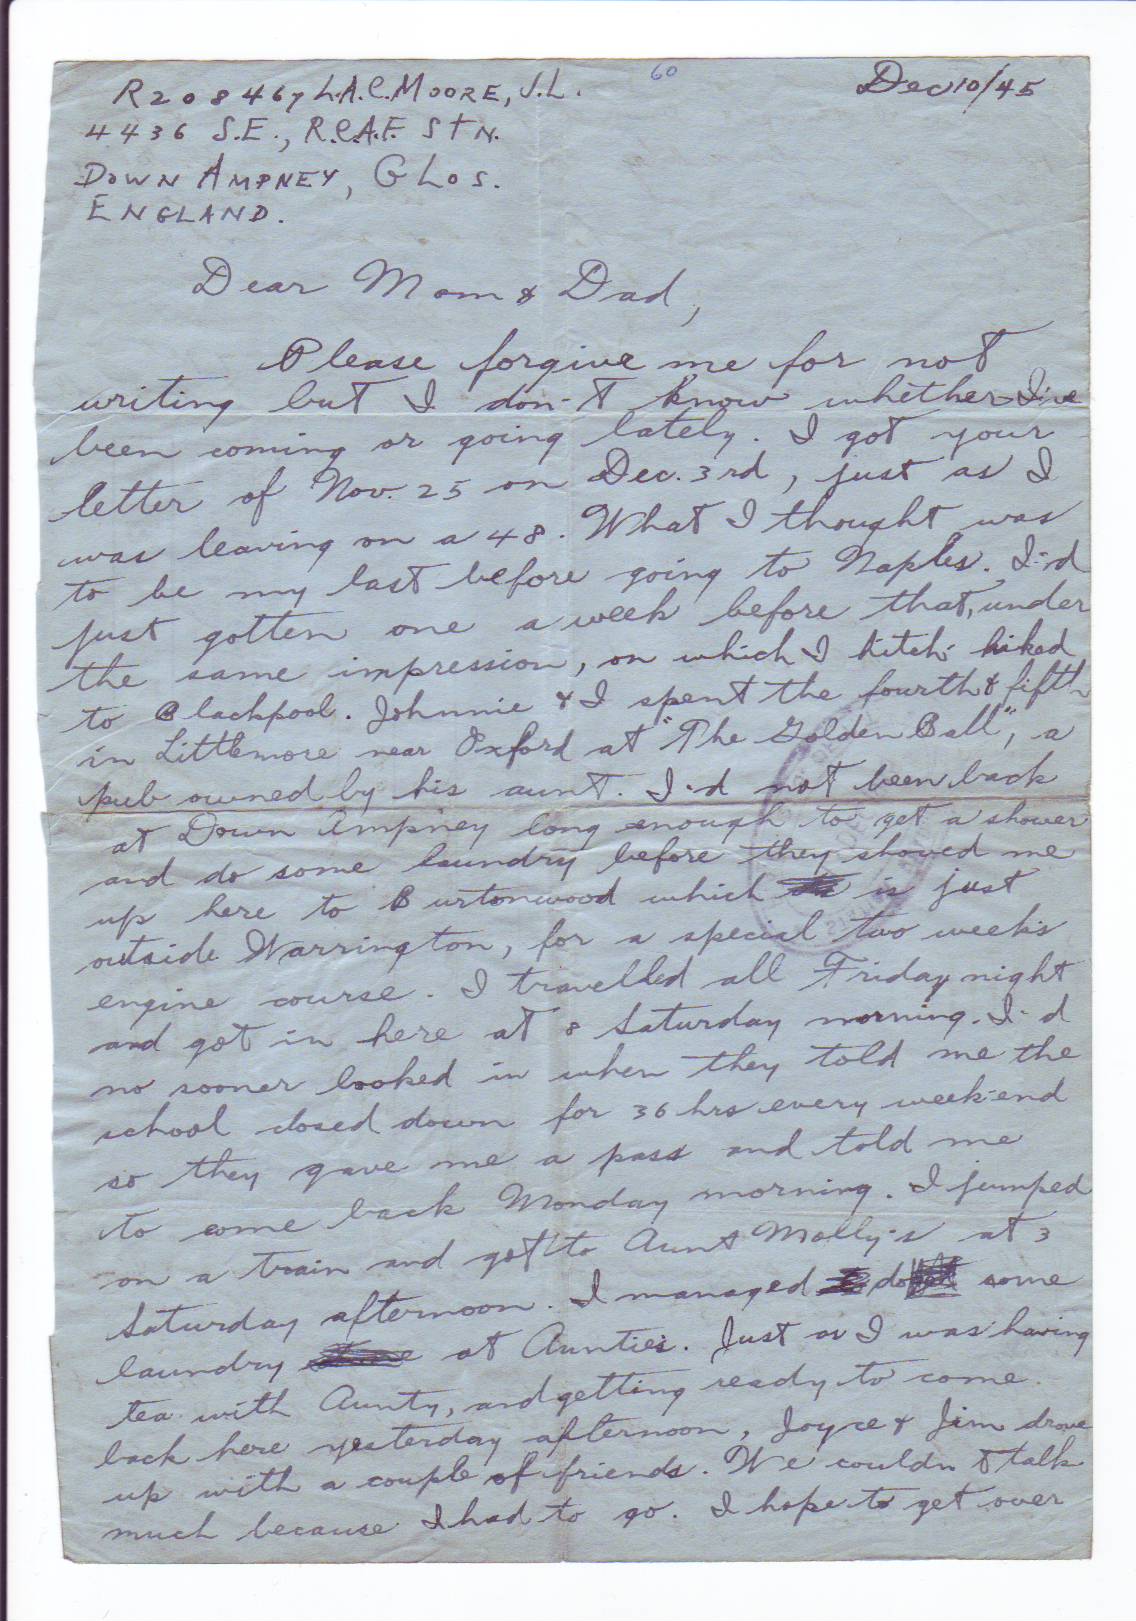 60
R208467 L.A.C. MOORE, J.L.
Dec 10/45
4436 S.E., R.C.A.F. STN.
DOWN AMPNEY, GLOS.
ENGLAND.
Dear Mom & Dad,
Please forgive me for not
writing but I don't know whether I've
been coming or going lately. I got your
letter of Nov. 25 on Dec. 3rd, just as I
was leaving on a 48. What I thought was
to be my last before going to Naples. I'd
just gotten one a week before that, under
the same impression, on which I hitch-hiked
to Blackpool. Johnnie & I spent the fourth & fifth
in Littlemore near Oxford at "The Golden Ball", a
pub owned by his aunt. I'd not been back
at Down Ampney long enough to get a shower
and do some laundry before they shoved me
up here to Burtonwood which is just
outside Warrington, for a special two weeks
engine course. I travelled all Friday night
and got in here at 8 Saturday morning. I'd
no sooner looked in when they told me the
school closed down for 36 hrs every week-end
so they gave me a pass and told me
to come back Monday morning. I jumped
on a train and got to Aunt Molly's at 3
Saturday afternoon. I managed do some
laundry at Auntie's. Just as I was having
tea with Aunty, and getting ready to come
back here yesterday afternoon, Joyce & Jim drove
up with a couple of friends. We couldn't talk
much because I had to go. I hope to get over